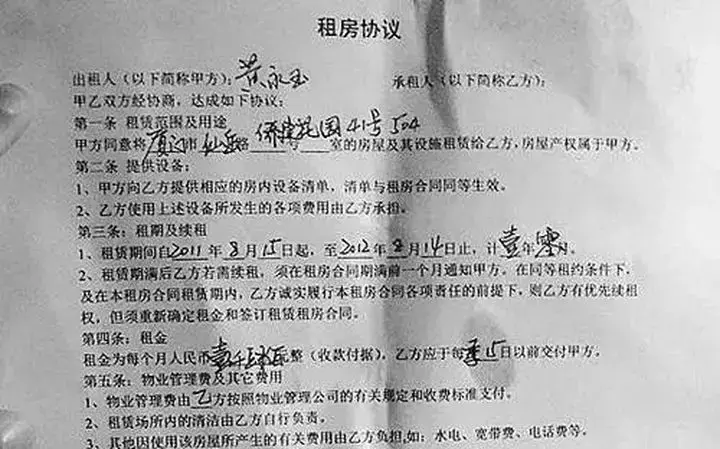 租房协议
出租人（以下简称甲方）：黄永玉 承租人（以下简称乙方）：
甲乙双方经协商，达成如下协议：
第一条 租赁范围及用途
甲方同意将厦门市仙岳路 号 室的房屋及其设施租赁给乙方，房屋产权属于甲方。
侨建花园41号504
第二条 提供设备：
1、甲方向乙方提供相应的房内设备清单，清单与租房合同同等生效。
2、乙方使用上述设备所发生的各项费用由乙方承担。
第三条：租期及续租
1、租赁期间自2011年8月15日起，至2012年8月14日止，计壹年零月。
2、租赁期满后乙方若需续租，须在租房合同期满前一个月通知甲方。在同等租约条件下，
及在本租房合同租赁期内，乙方诚实履行本租房合同各项责任的前提下，则乙方有优先续租
权，但须重新确定租金和签订租赁租房合同。
第四条：租金
租金为每个月人民币壹千 元整（收款付据），乙方应于每季15日以前交付甲方。
第五条：物业管理费及其它费用
1、物业管理费由乙方按照物业管理公司的有关规定和收费标准支付。
2、租赁场所内的清洁由乙方自行负责。
3、其他因使用该房屋所产生的有关费用由乙方负担,如：水电、宽带费、电话费等。